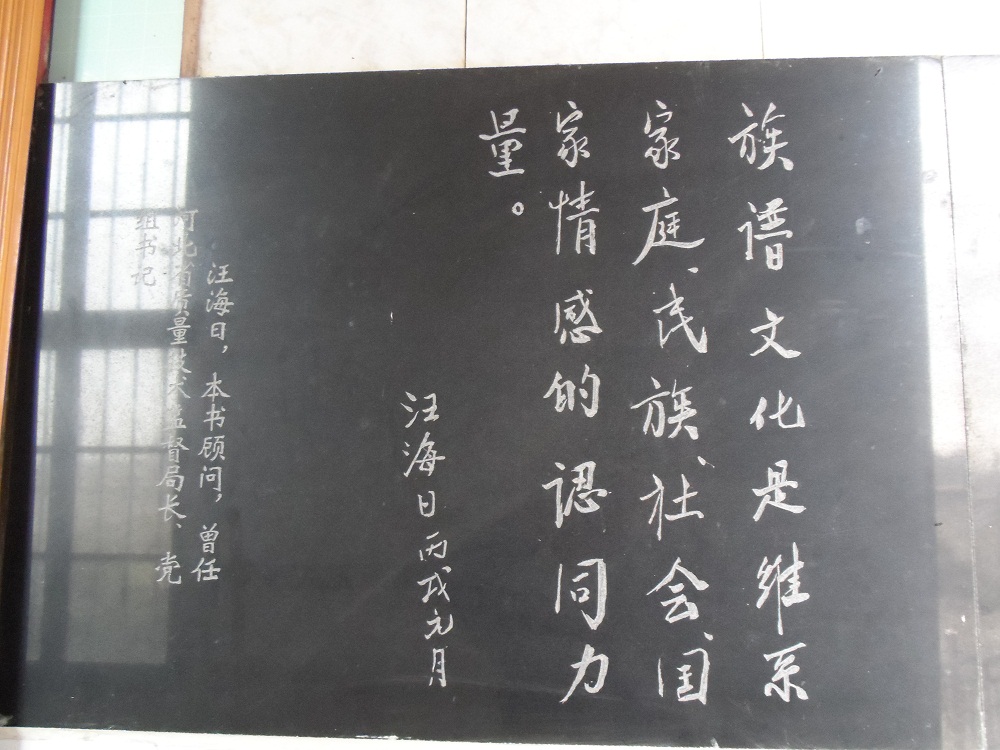 族谱文化是维系
家庭、民族、社会、国
家情感的認同力
量。
汪海日丙戌元月
汪海日，本书顾问，曾任
河北省质量技术监督局长、党
组书记